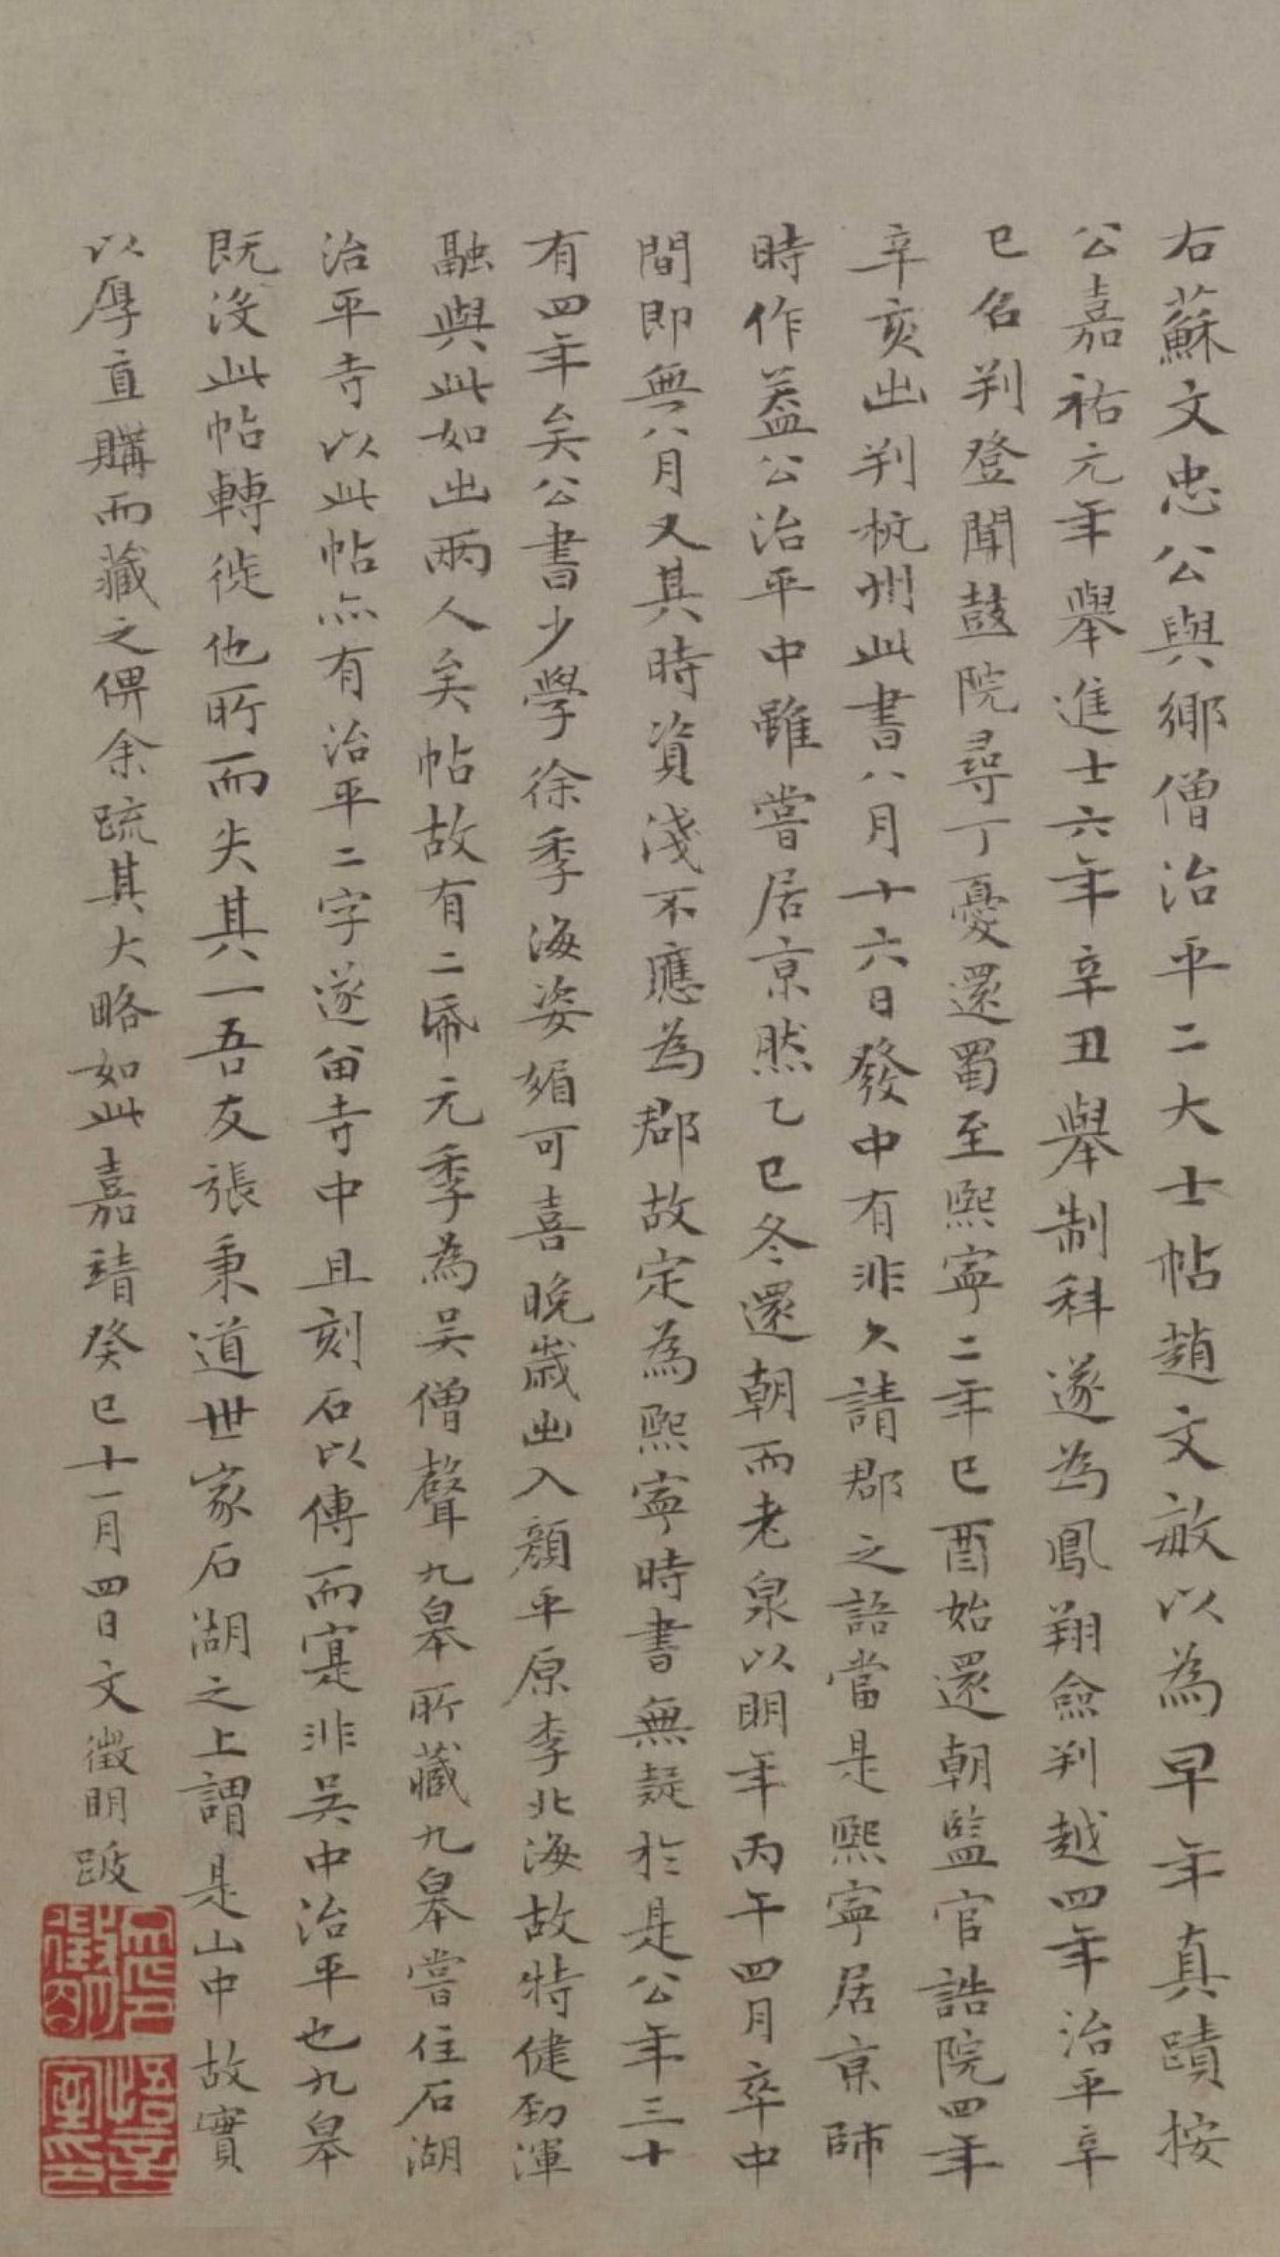 右蘇文忠公與鄉僧治平二大士帖趙文敏以為早年真蹟按
公嘉祐元年舉進士六年辛丑舉制科遂為鳳翔僉判越四年治平辛
巳名判登聞鼓院尋丁憂還蜀至熙寧二年巳酉始還朝監官誥院四年
辛亥出判杭州此書八月十六日發中有非久請郡之語當是熙寧居京師
時作蓋公治平中雖嘗居京然乙巳冬還朝而老泉以明年丙午四月卒中
間即無八月又其時資淺不應為郡故定為熙寧時書無疑於是公年三十
有四年矣公書少學徐季海姿媚可喜晚歲出入顏平原李北海故特健勁渾
融與此如出兩人矣帖故有二帋元季為吳僧聲九皋所藏九皋嘗住石湖
治平寺以此帖亦有治平二字遂留寺中且刻石以傳而寔非吳中治平也九皋
既沒此帖轉徙他所而失其一吾友張秉道世家石湖之上謂是山中故實
以厚直購而藏之俾余疏其大略如此嘉靖癸巳十一月四日文徵明跋
徵明印
悟言室印